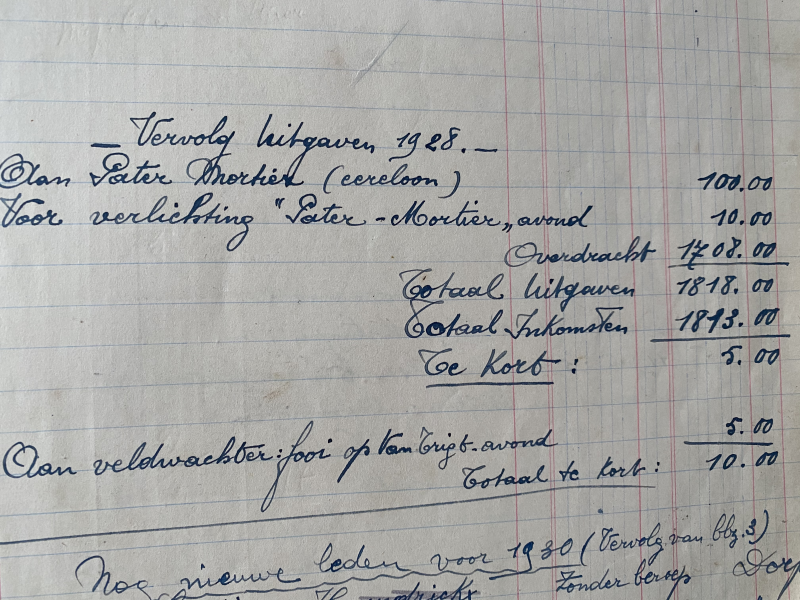 - Vervolg Uitgaven 1928. -
Aan Pater Mortier (eereloon) 100.00
Voor verlichting "Pater - Mortier„ avond 10.00
Overdracht 1708.00
Totaal Uitgaven 1818.00
Totaal Inkomsten 1813.00
Te Kort : 5.00
Aan veldwachter: fooi op Van Trigt-avond 5.00
Totaal te kort: 10.00
Nog nieuwe leden voor 1930 (Vervolg van blz. 3)
Zonder beroep Dorp